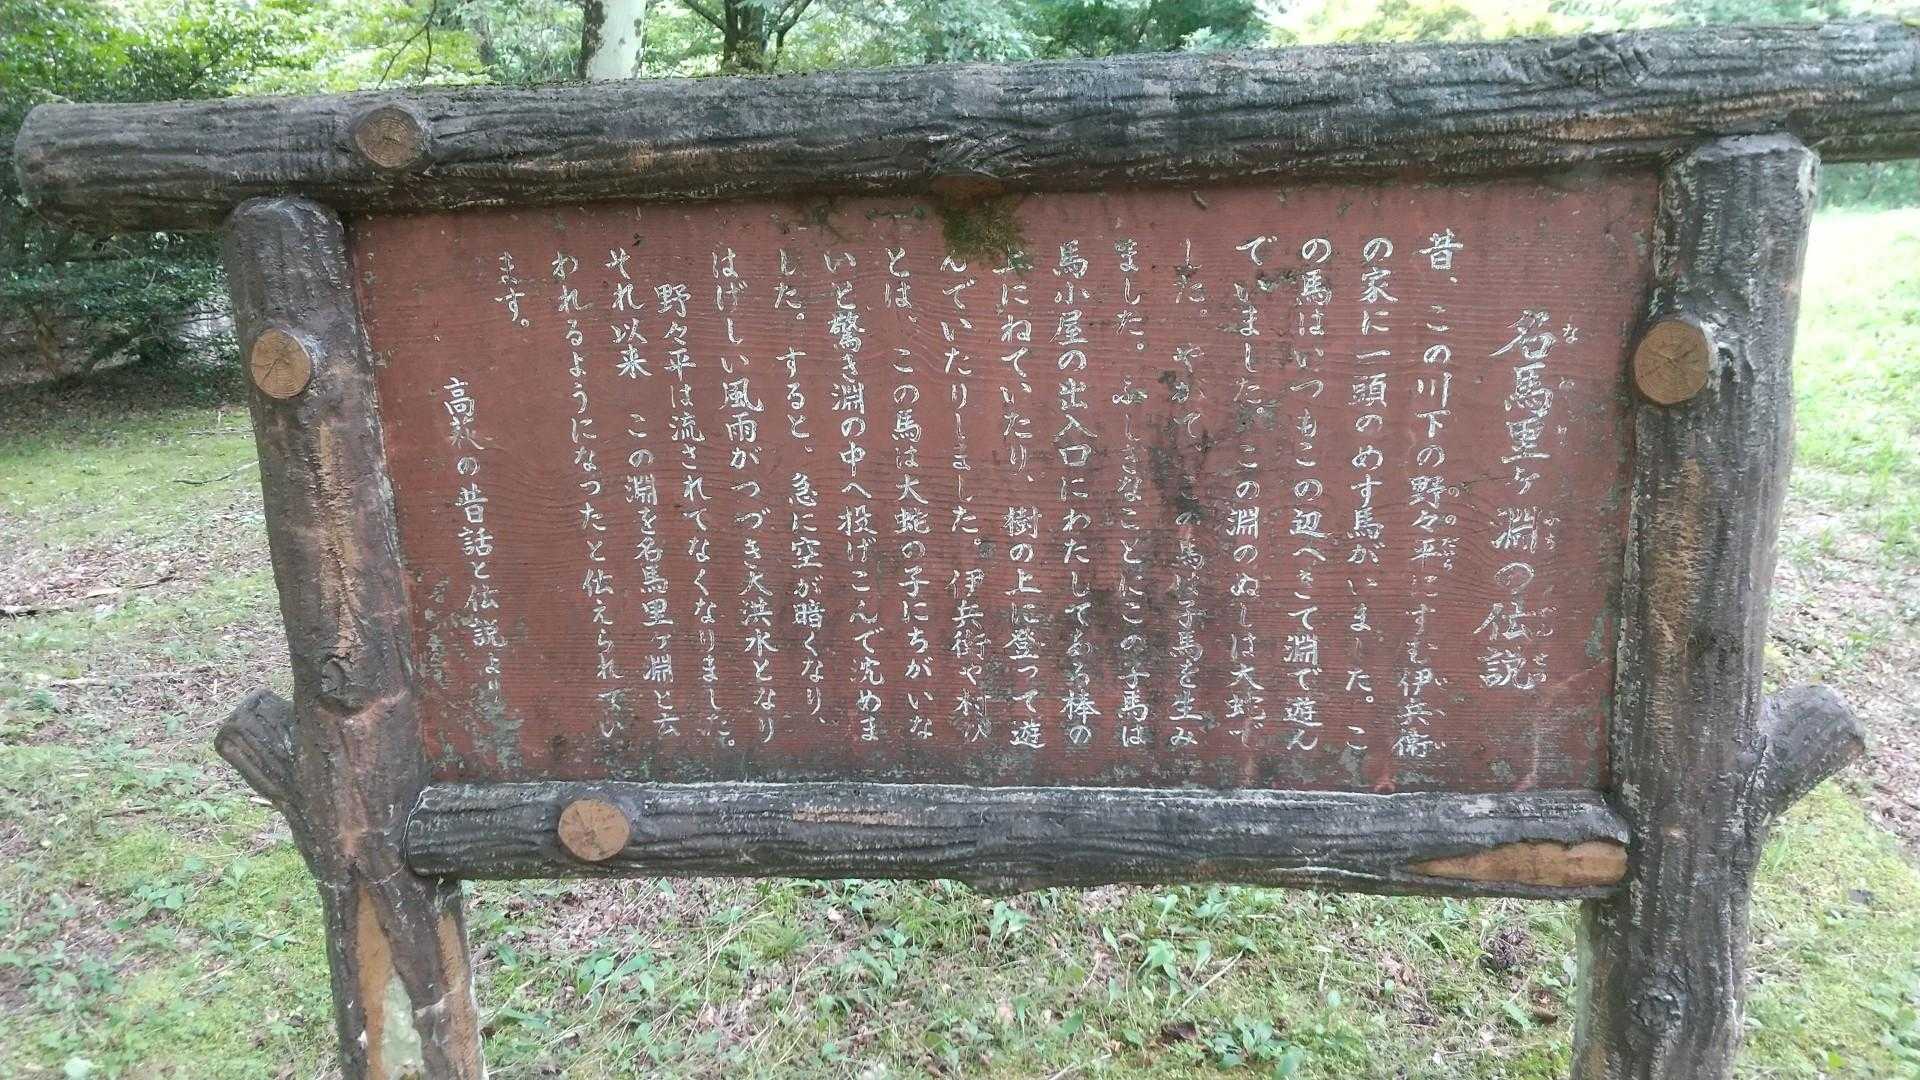 名馬里ヶ淵の伝説
昔、この川下の野々平にすむ伊兵衛
の家に一頭のめす馬がいました。こ
の馬はいつもこの辺へきて淵で遊ん
でいました。この淵のぬしは大蛇で
した。やがて、この馬は子馬を生み
ました。ふしぎなことにこの子馬は
馬小屋の出入口にわたしてある棒の
上にねていたり、樹の上に登って遊
んでいたりしました。伊兵衛や村
とは、この馬は大蛇の子にちがいな
いと驚き淵の中へ投げこんで沈めま
した。すると、急に空が暗くなり、
はげしい風雨がつづき大洪水となり
野々平は流されてなくなりました。
それ以来 この淵を名馬里ヶ淵と云
われるようになったと伝えられてい
ます。
高萩の昔話と伝説より